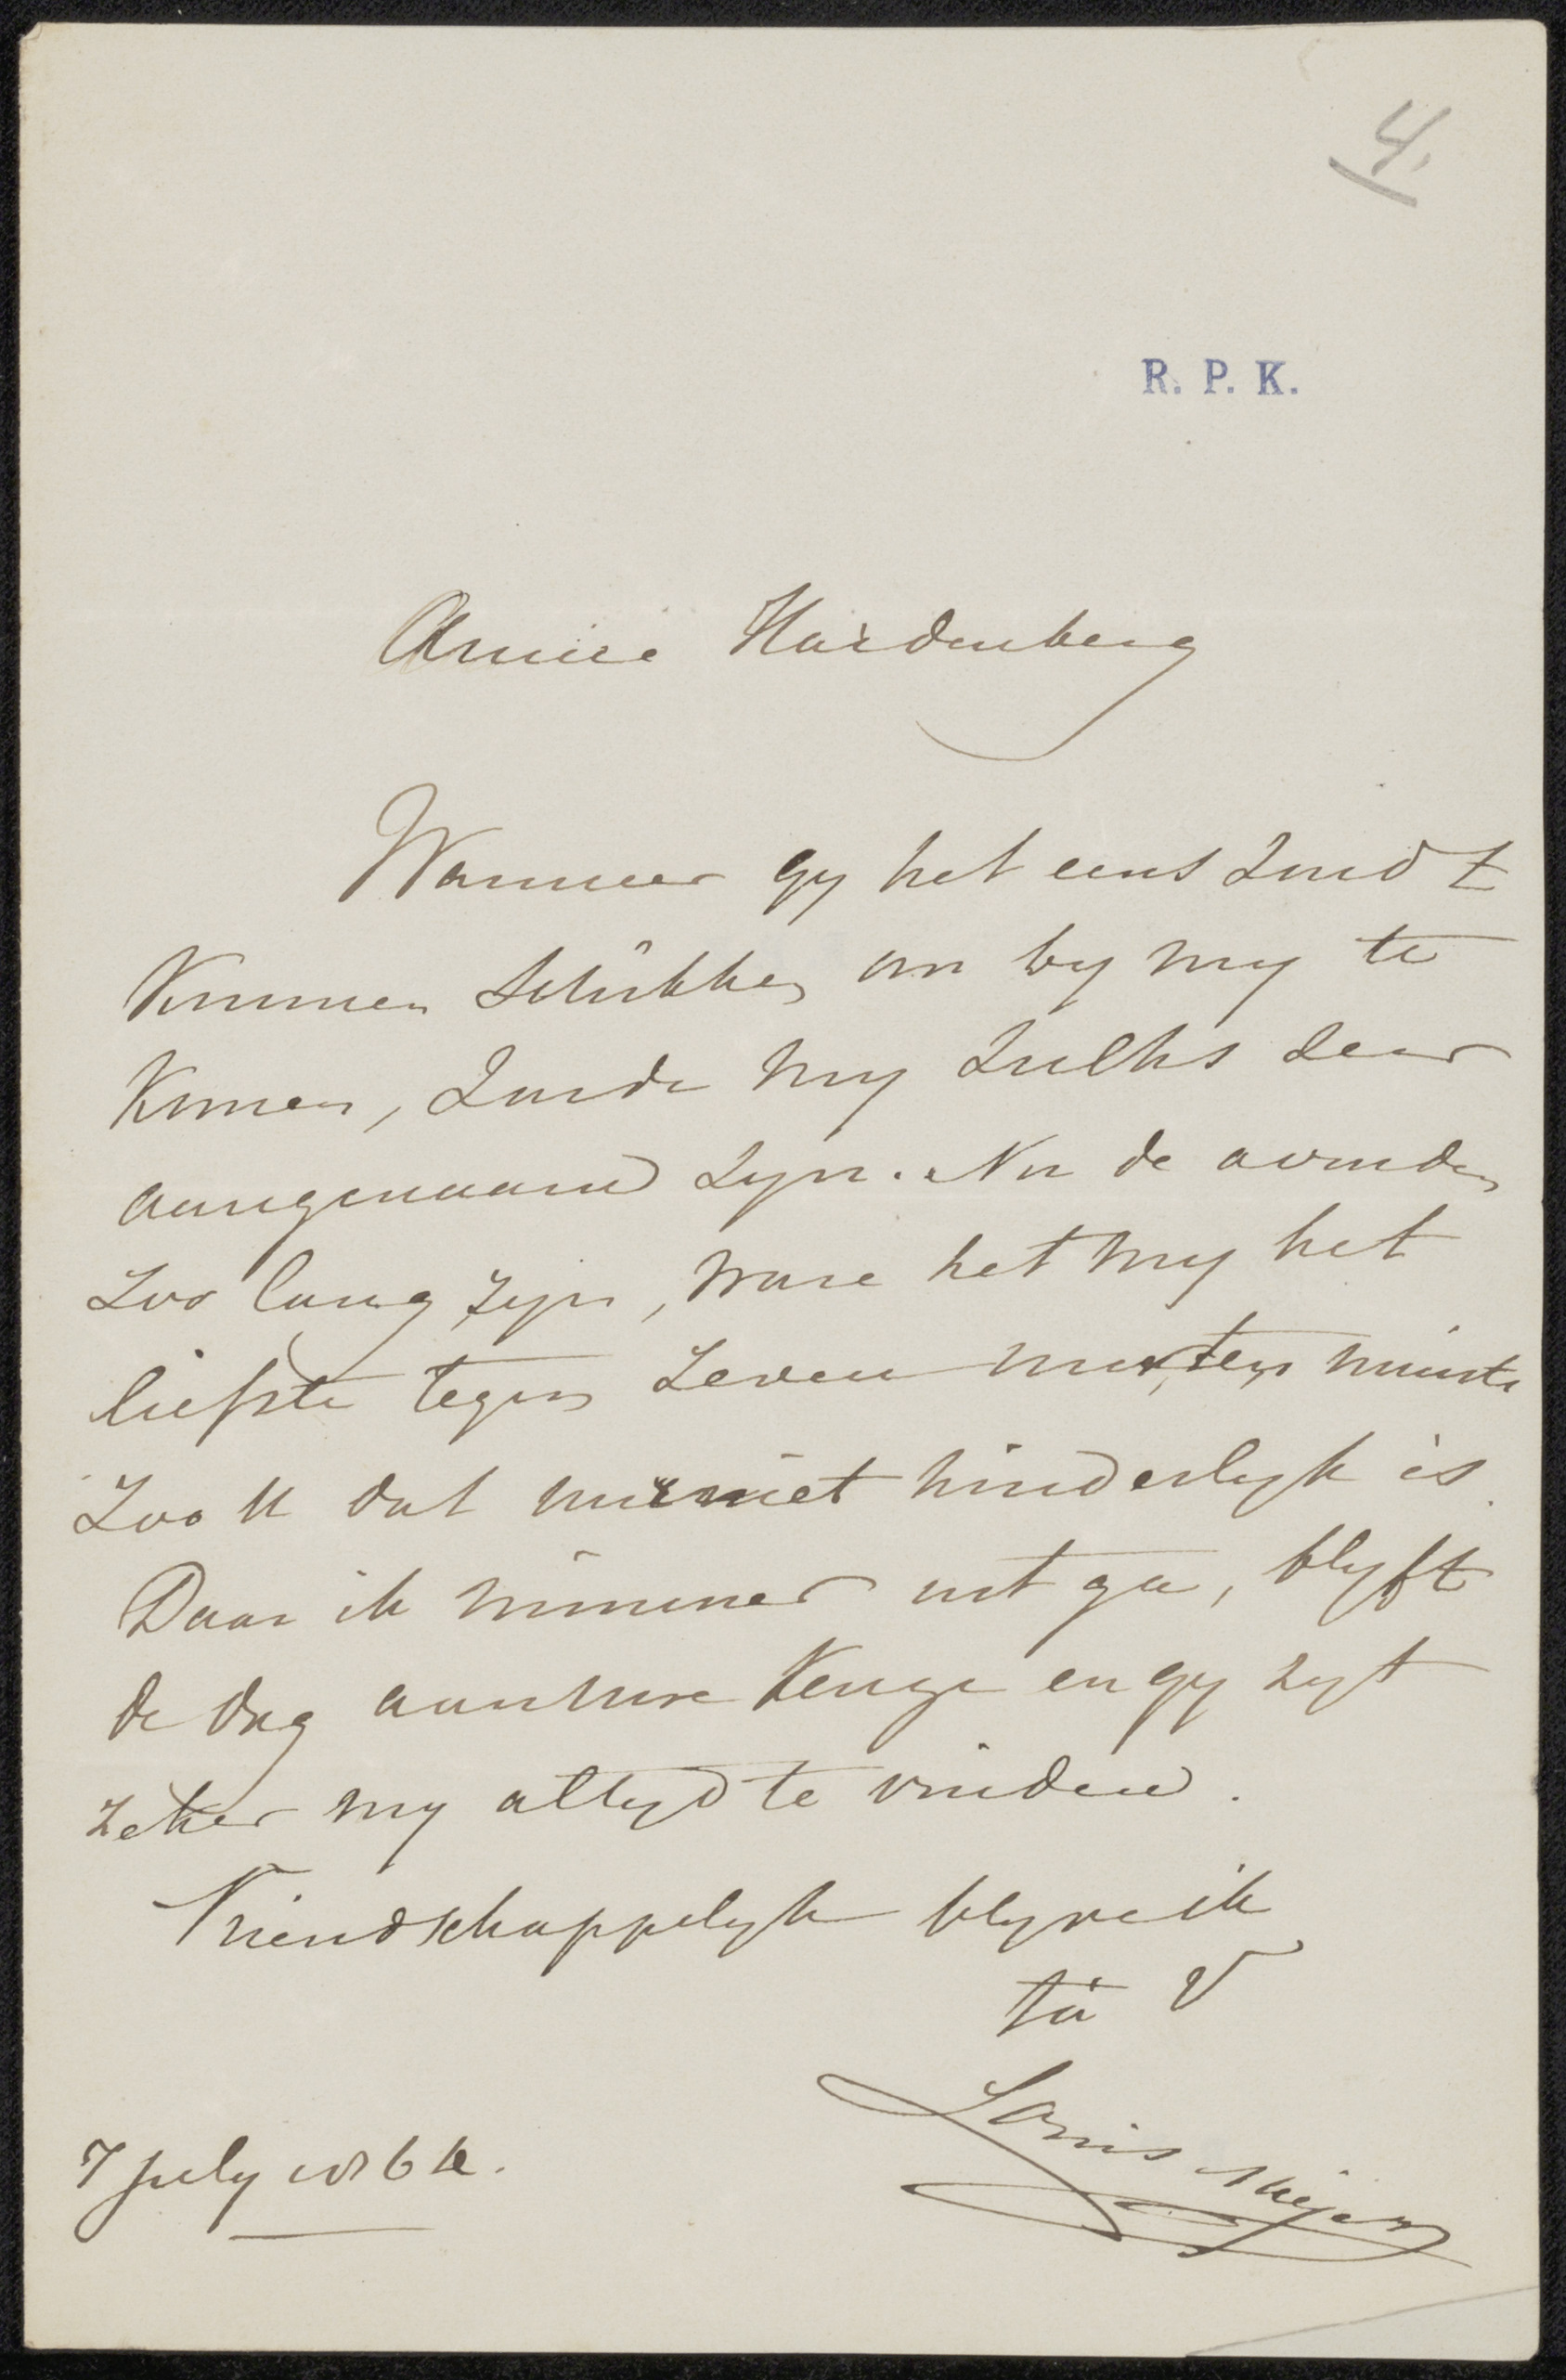 4.
R. P. K.
Amice Hardenberg
Wanneer gy het eens zoudt
Kunnen schikken om by my te
Komen, zoude my zulks zeer
aangenaam zyn. Nu de avonden
Zoo lang zyn, ware het my het
liefste tegen zeven ten minste
Zoo U dat niet hinderlyk is.
Daar ik nimmer uit ga, blyft
de dag aan uwe Keuze en gy zyt
zeker my altyd te vinden.
Vriendschappelyk blyve ik
tà V
Louis Meijer
7 july 1864.